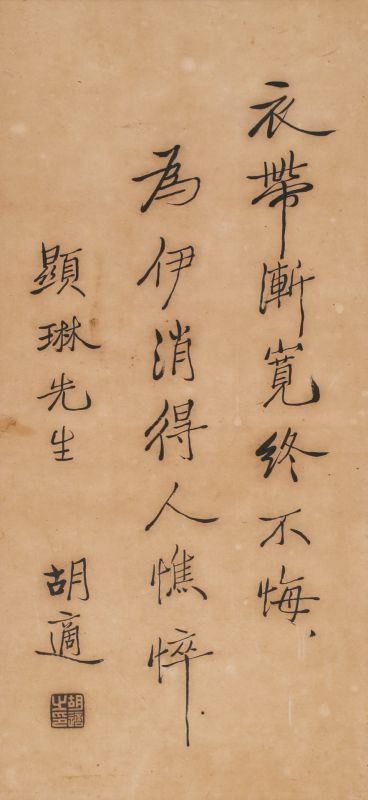 衣帶漸寬終不悔、
為伊消得人憔悴．
顯琳先生
胡適
胡適之印